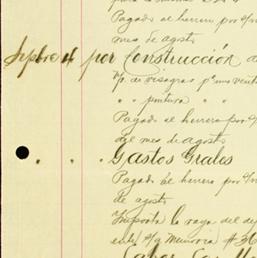 Pagado al herrero por c/
mes de agosto
Sepbre 4 por Construcción
V/p de visagras p' una vent
" " pintura " "
Pagado al herrero por c/
del mes de agosto
" " " Gastos Grales
Pagado al herrero por c/
de agosto
Importa la raya del de
s/g Memoria # 36